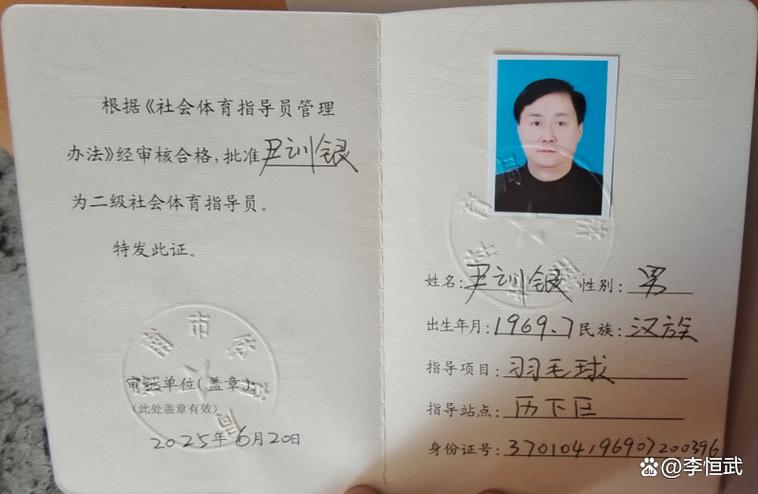 根据《社会体育指导员管理
办法》经审核合格,批准尹训银
为二级社会体育指导员。
特发此证。
审批单位(盖章):
(此处盖章有效)
2025年6月20日
姓名:尹训银 性别:男
出生年月:1969.7 民族:汉族
指导项目:羽毛球
指导站点:历下区
身份证号:370104196907200396
@李恒武